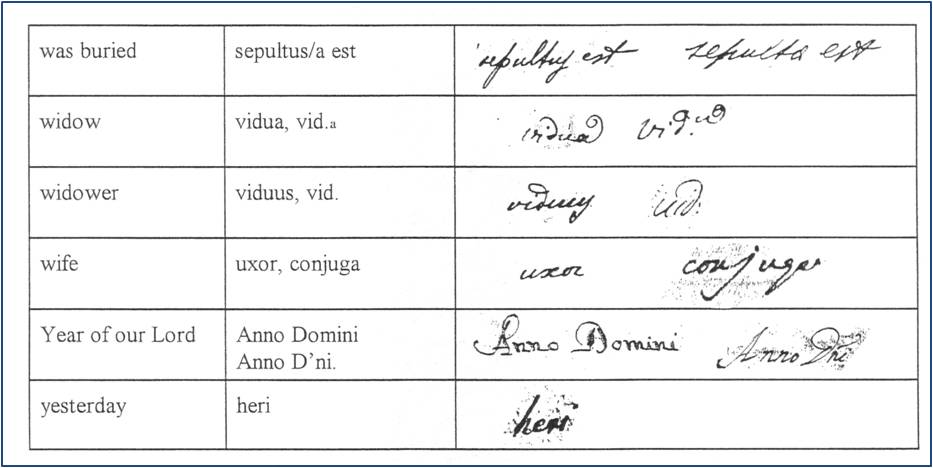 was buried sepultus/a est sepultus est sepulta est
widow vidua, vid.a vidua vid.ua
widower viduus, vid. viduus vid.
wife uxor, conjuga uxor conjuga
Year of our Lord Anno Domini Anno Domini Anno Dni
Anno D'ni.
yesterday heri heri